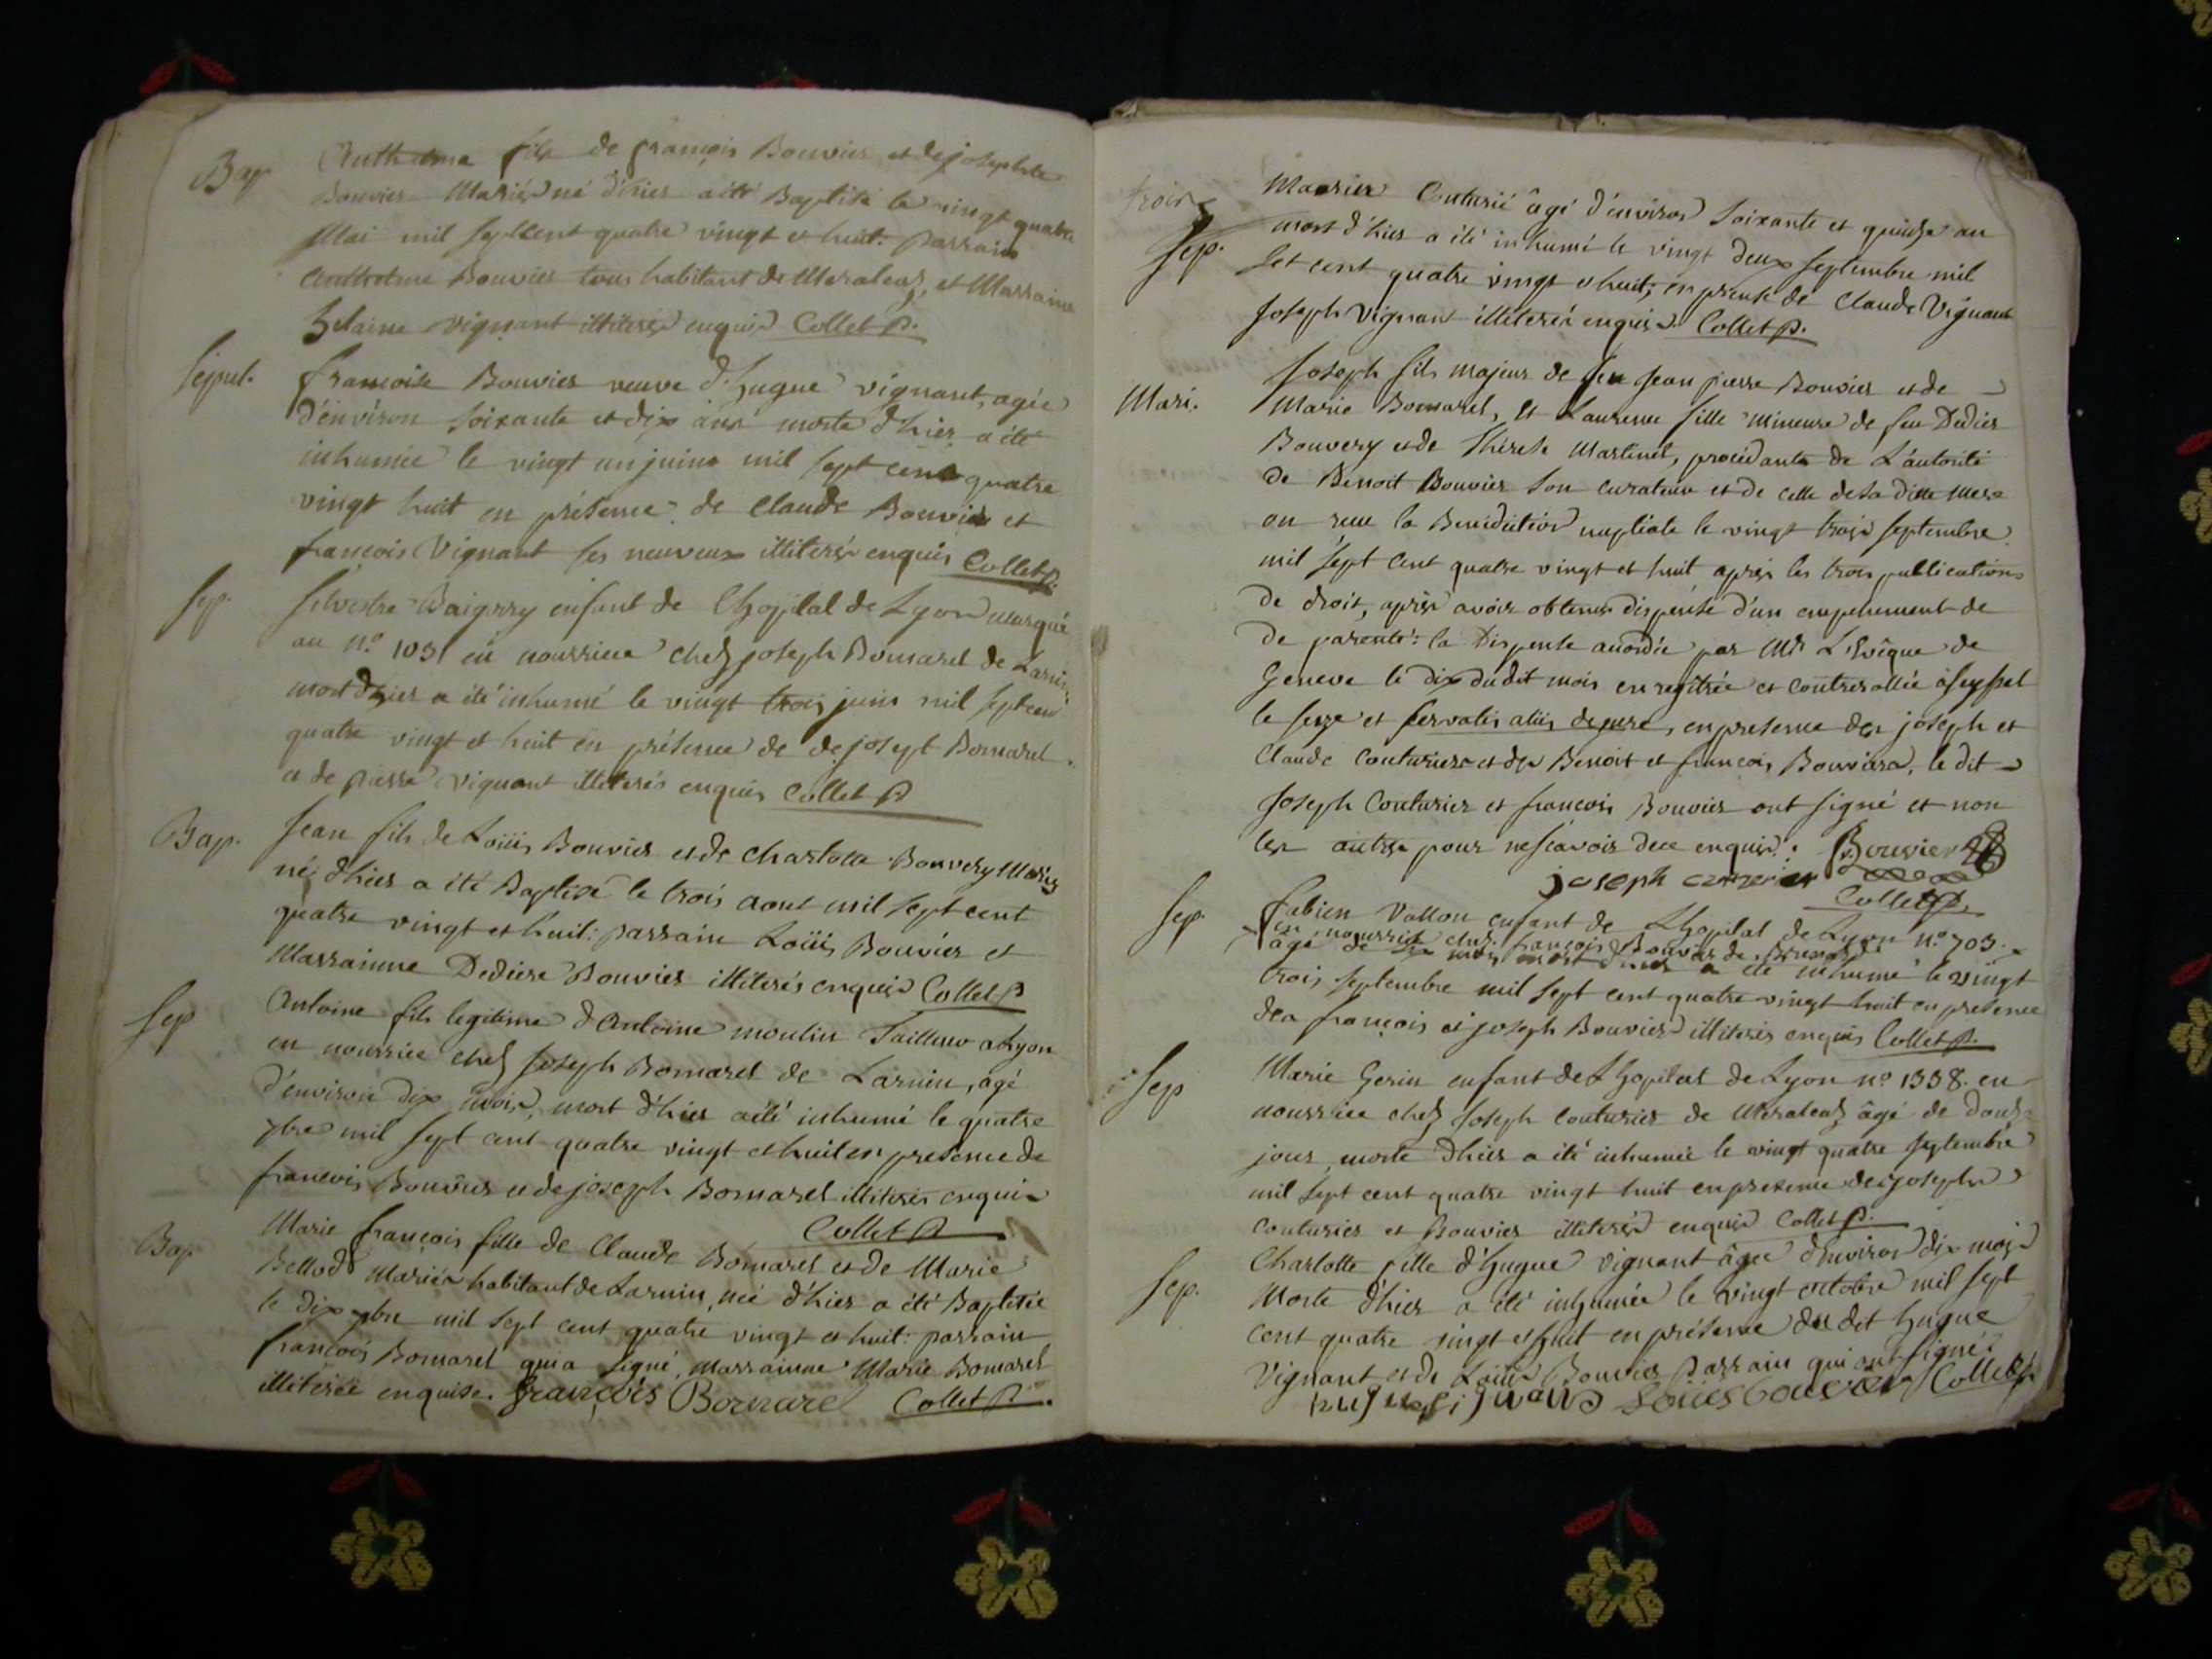 Bap Anthelme fils de françois Bouvier et de josephte
Bouvier Mariés né d'hier a été Baptisé le vingt quatre
Mai mil septcent quatre vingt et huit: parrain
Anthelme Bouvier tous habitant de Meraleaz, et Marraine
vignant illiterés enquis Collet p.
sepul. françoise Bouvier veuve d'hugue vignant, agée
d'environ soixante et dix ans morte d'hier a été
inhumée le vingt un juin mil sept cent quatre
vingt huit en présence de Claude Bouvier et
françois Vignant ses neuveux illiterés enquis Collet p.
sep. silvestre enfant de Lhopital de Lyon marqué
au n.o 103 en nourrice chez joseph Bornarel de Larnin
mort d'hier a été inhumé le vingt trois juin mil septcent
quatre vingt et huit en présence de de joseph Bornarel
et de pierre vignant illiterés enquis Collet p
Bap. Jean fils de Loüis Bouvier et de charlotte Bouvery Mariés
né d'hier a été Baptisé le trois aout mil sept cent
quatre vingt et huit: parrain Loüis Bouvier et
Marrainne Dediere Bouvier illiterés enquis Collet p
sep Antoine fils legitime d'Antoine moulin Tailleur a Lyon
en nourrice chez Joseph Bornarel de Larnin, agé
d'environ dix mois, mort d'hier a été inhumé le quatre
7bre mil sept cent quatre vingt et huit en presence de
francois Bouvier et de joseph Bornarel illiterés enquis
Collet p
Bap Marie françois fille de Claude Bornarel et de Marie
Bellod Mariés habitant de Larnin, née d'hier a été Baptisée
le dix 7bre mil sept cent quatre vingt et huit: parrain
francois Bornarel qui a signé, marrainne Marie Bornarel
illiterée enquise. françois Bornarel Collet p.
trois
sep. Couturié âgé d'environ soixante et quinze an
mort d'hier a été inhumé le vingt deux septembre mil
set cent quatre vingt et huit, en presence de Claude Vignant
Joseph Vignant illiterés enquis Collet p.
Mari. Joseph fils majeur de feu Jean pierre Bouvier et de
Marie Bornarel, et Laurence fille mineure de feu Dedier
Bouvery et de thérese Martinet, procédante de L'autorité
de Benoit Bouvier son curateur et de celle de sa ditte mere
on recu la Benediction nuptiale le vingt trois septembre
mil sept cent quatre vingt et huit après les trois publications
de droit, après avoir obtenu dispense d'un empechement de
de parenté: la Dispense accordée par Mr. L'Evêque de
Geneve le dix dudit mois enregitrée et contrerollée a seyssel
le seize et servatis aliis de jure, en presence des joseph et
Claude Couturier et des Benoit et francois Bouvier, le dit
Joseph Couturier et francois Bouvier ont signé et non
les autres pour ne scavoir de ce enquis. Bouvier
joseph Collet p.
sep. fabien Vallon enfant de Lhopital de Lyon n.o 703.
en nourrice chez françois Bouvier de
âgé de mois mort d'hier a été inhumé le vingt
trois septembre mil sept cent quatre vingt huit en presence
des françois et joseph Bouvier illiterés enquis Collet p.
sep Marie Gerin enfant de Lhopital de Lyon n.o 1338. en
nourrice chez Joseph Couturier de Meraleaz âgé de douze
jours, morte d'hier a été inhumée le vingt quatre septembre
mil sept cent quatre vingt huit en presence des joseph
couturier et Bouvier illiterés enquis Collet p.
sep. Charlotte fille d'hugue Vignant âgée d'environ dix mois
Morte d'hier a été inhumée le vingt octobre mil sept
cent quatre vingt et huit en présence du dit hugue
Vignant et de Loüis Bouvier parrain qui ont signé
Loüis bouvier Collet p.